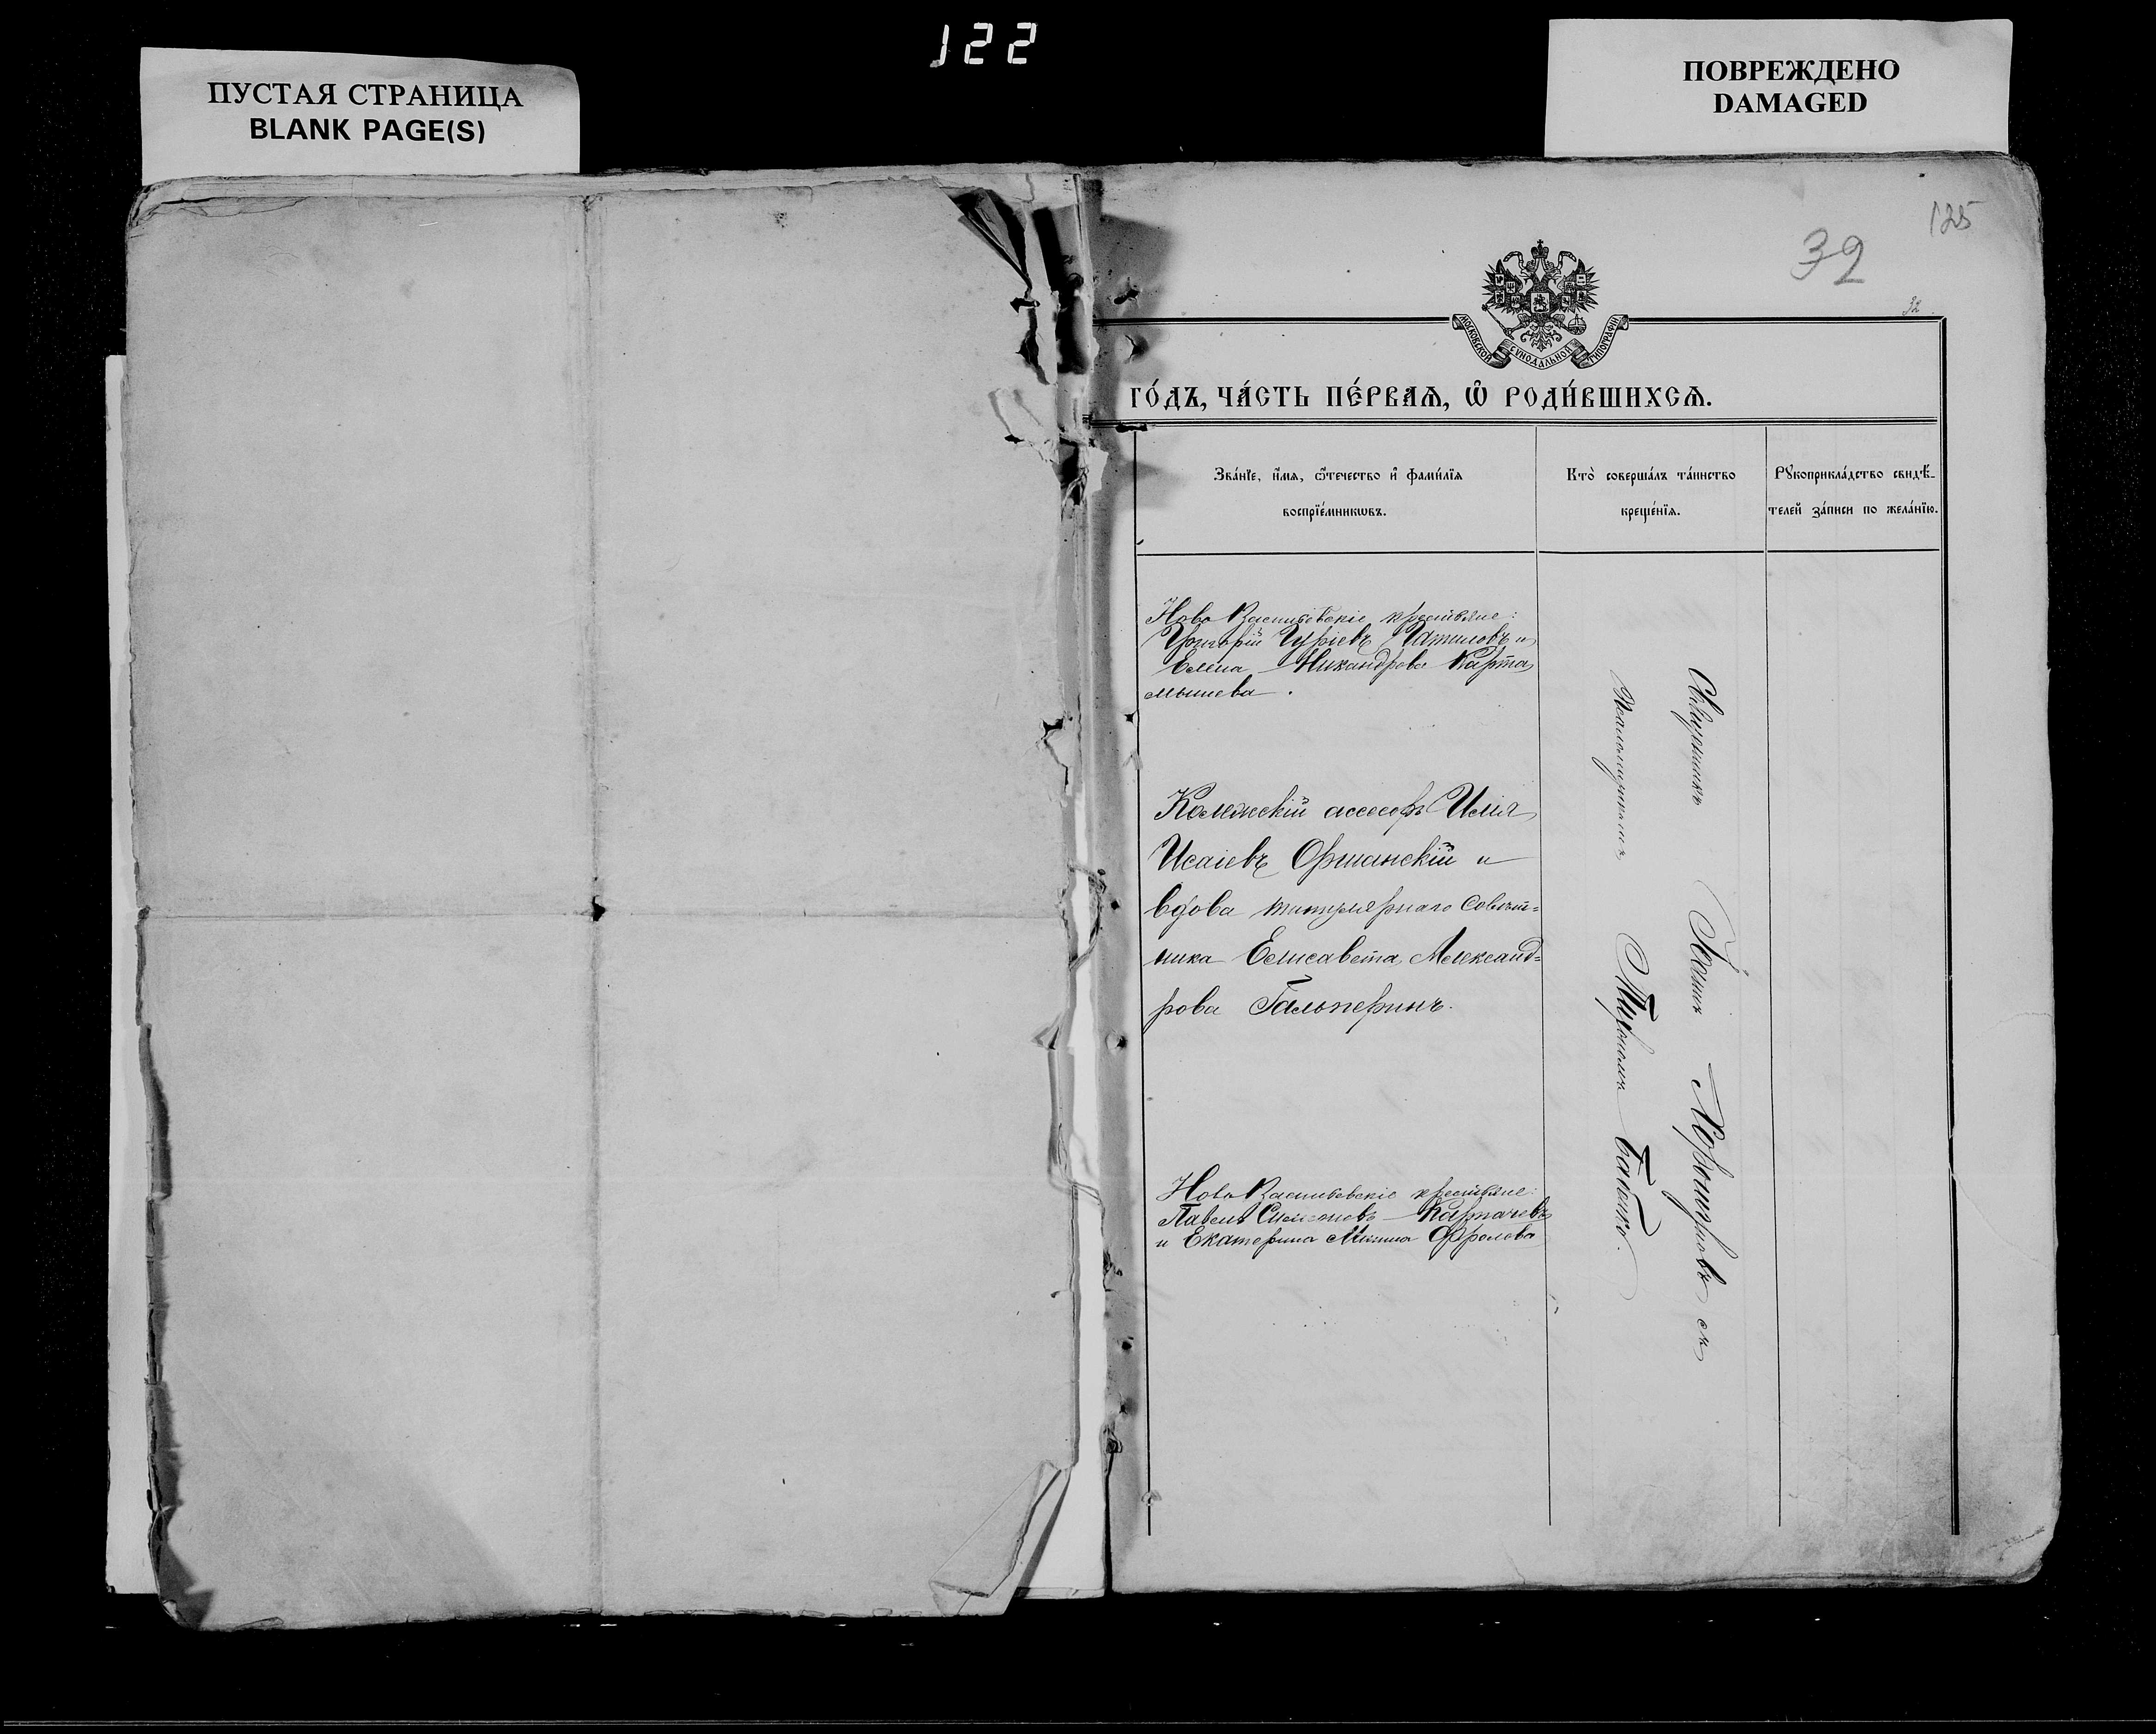 122
ПУСТАЯ СТРАНИЦА
BLANK PAGE(S)
ПОВРЕЖДЕНО
DAMAGED
125
32
32
МОСКОВСКОЙ СѴНОДАЛЬНОЙ ТИПОГРАФІИ
ГО́ДЪ, ЧА́СТЬ ПЕ́РВАѦ, Ѡ҆ РОДИ́ВШИХСѦ.
Зва́нїе, и҆́мѧ, ѻ҆́течество и҆ фами́лїѧ
воспрїе́мникѡвъ.
Кто̀ соверша́лъ та́инство
креще́нїѧ.
Рꙋкоприкла́дство свидѣ́-
телей за́писи по жела́нїю.
Ново Васильевскіе крестьяне:
Григорій Гуріевъ и
Елена Никандрова Карта
мышева.
Колежскій ассесоръ Илія
Исаіевъ Оршанскій и
вдова титулярнаго Совѣт=
ника Елисавета Александ=
рова Гальперинъ.
Ново Васильевскіе крестьяне:
Павелъ Симеоновъ
и Екатерина Фролова
Священникъ Іоаннъ съ
Псаломщикомъ Бабко.